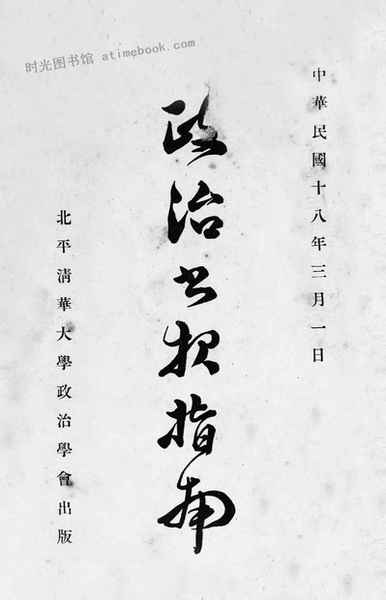 时光图书馆 atimebook.com
中華民國十八年三月一日
政治书报指南
北平清華大學政治學會出版